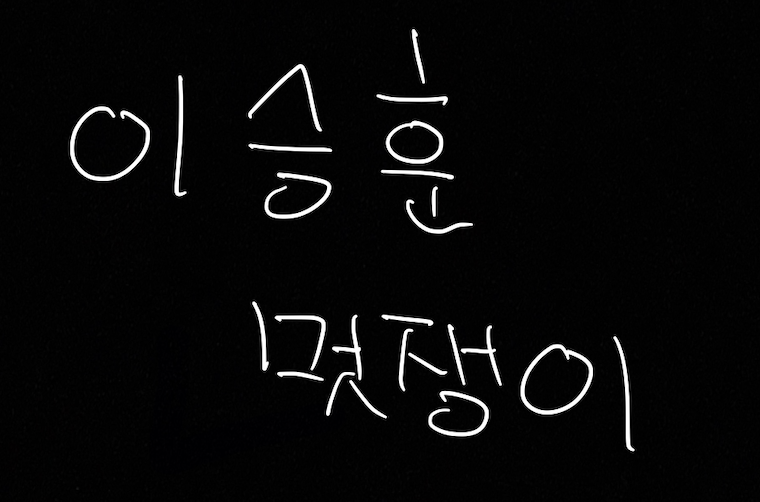 이승훈
멋쟁이